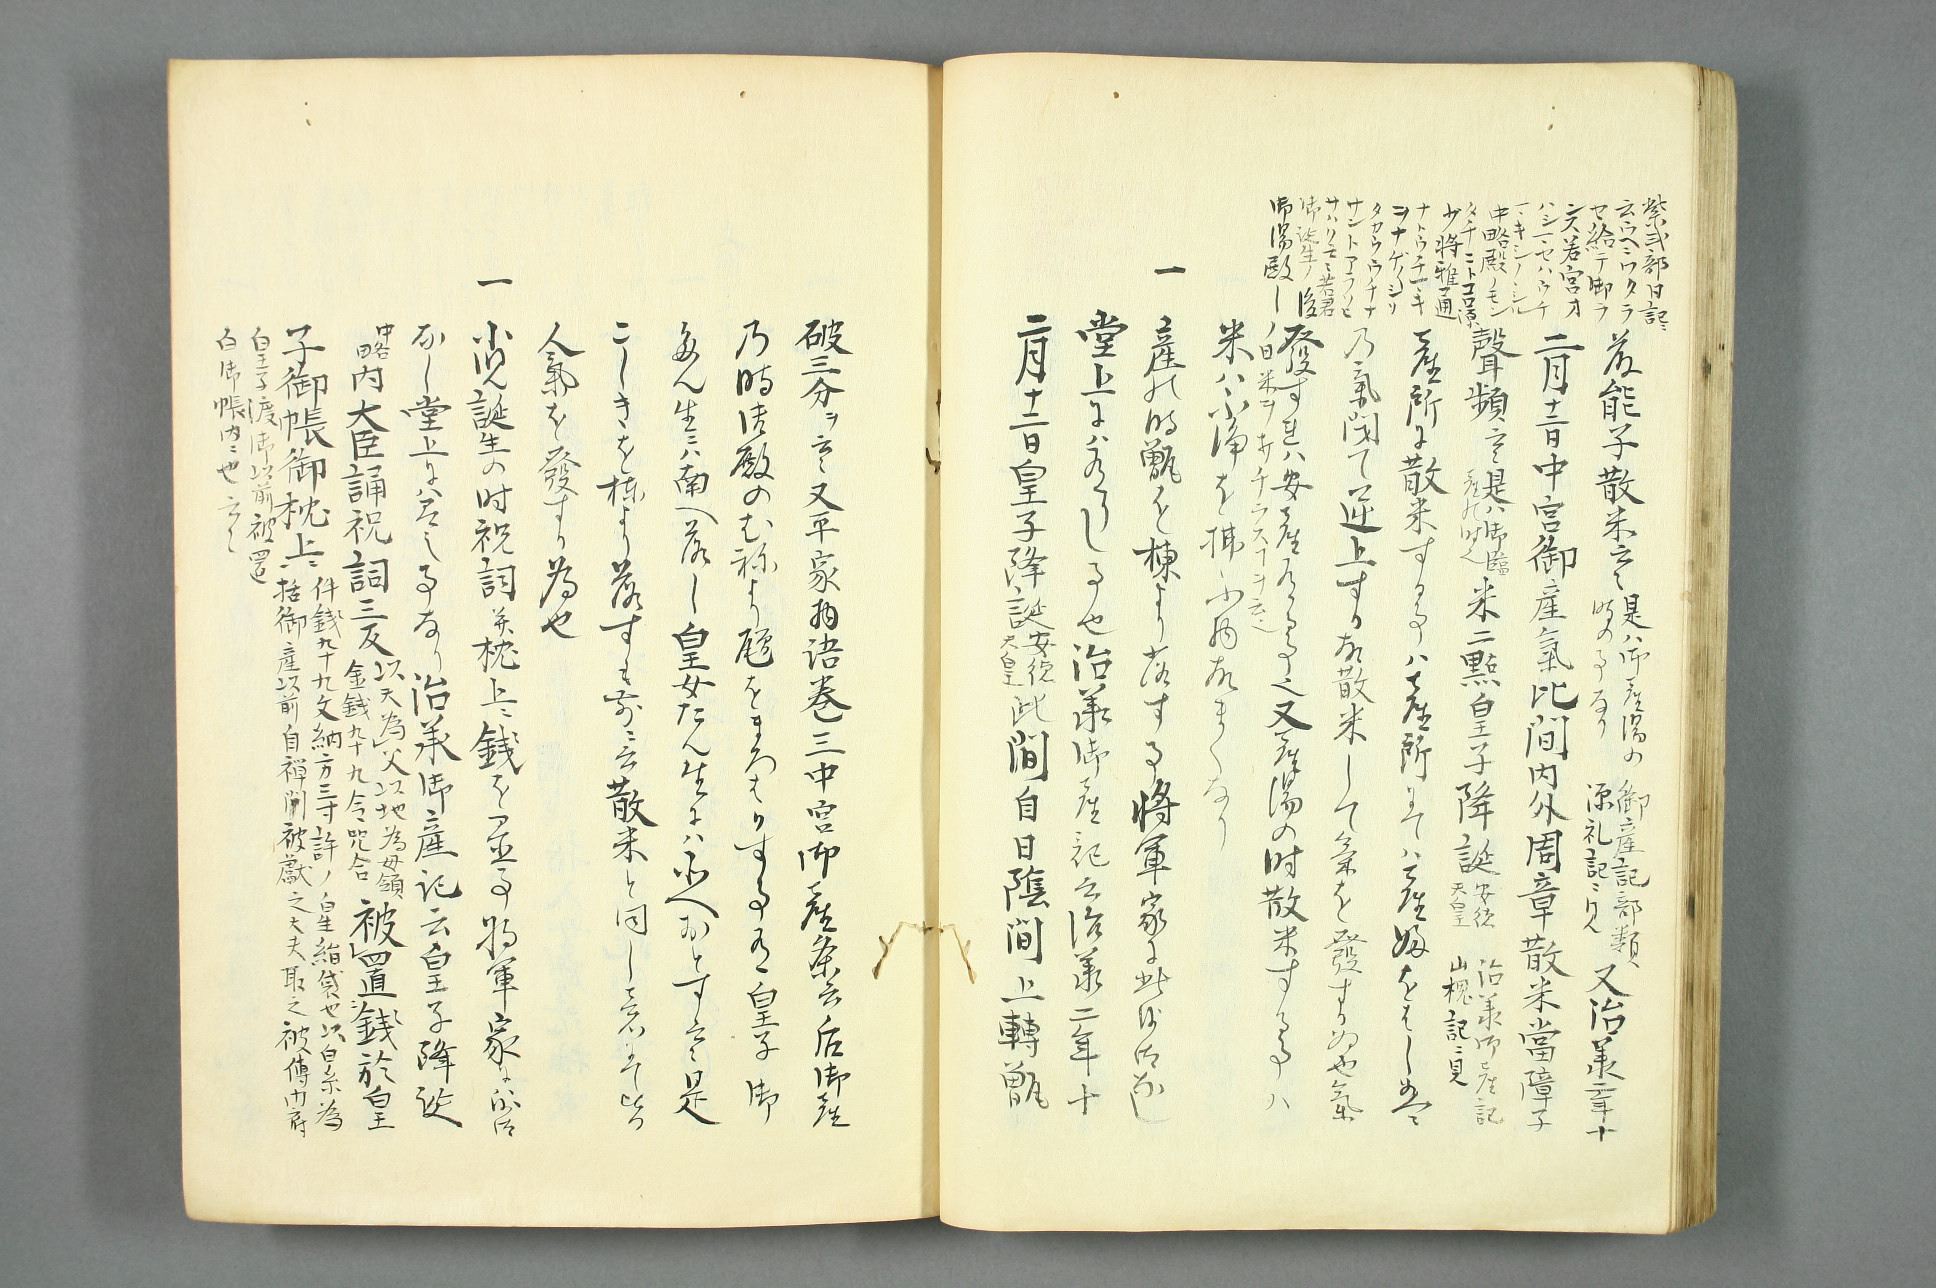 紫式部日記ニ
云ウヘニワタラ
セ給テ御ラ
ンス若宮オ
ハシマセハウチ
マキシノヽシル
中略殿ノモン
タチニトコロ源
少将雅通
ナトウチマキ
ヲナゲノヽシリ
タカウウチナ
サントアラソヒ
サハク云々若君
御誕生ノ後
御湯殿ノ
日米ヲウチチラスヿヲ云也
若能子散米云々是ハ御産湯の時の事なり 御産記部類源礼記ニ見 又治承二年十
二月十二日中宮御産氣此間内外周章散米當障子
聲頻云々是ハ御臨産の時也米二點皇子降誕安徳天皇 治承御産記山槐記ニ見
産所に散米する事ハ産所にてハ産婦をはしめ
乃氣閉て逆上する故散米して氣を發する為也氣
發すれハ安産する也又産湯の时散米する事ハ
米ハ不浄を拂ふ物故まくなり
一 産の時甑を棟より落する将軍家に此御沙汰なし
堂上にハありし事也治承御産記云治承二年十
二月十二日皇子降誕安徳天皇此間自日隠間上轉甑
破三分ヲ云々又平家物語巻三中宮御産条云后御産
乃時御殿のむねより甑をまろはかす事あり皇子御
たん生ニハ南へ落し皇女たん生にハ北へおとす云々是
こしきを棟より落すも前ニ云散米と同し意にて皆
人氣を發する為也
一 小児誕生の时祝詞并枕上ニ銭を置事将軍家に御沙汰
なし堂上にハある事なり治承御産記云皇子降誕
中略内大臣誦祝詞三反以天為父以地為母領金銭九十九令児命被置銭於皇
子御帳御枕上ニ件銭九十九文納方三寸許ノ白生絹袋也以白糸為括御産以前自禅閤被献之大夫取之被傳内府
皇子渡御以前被置
白御帳内ニ也云々